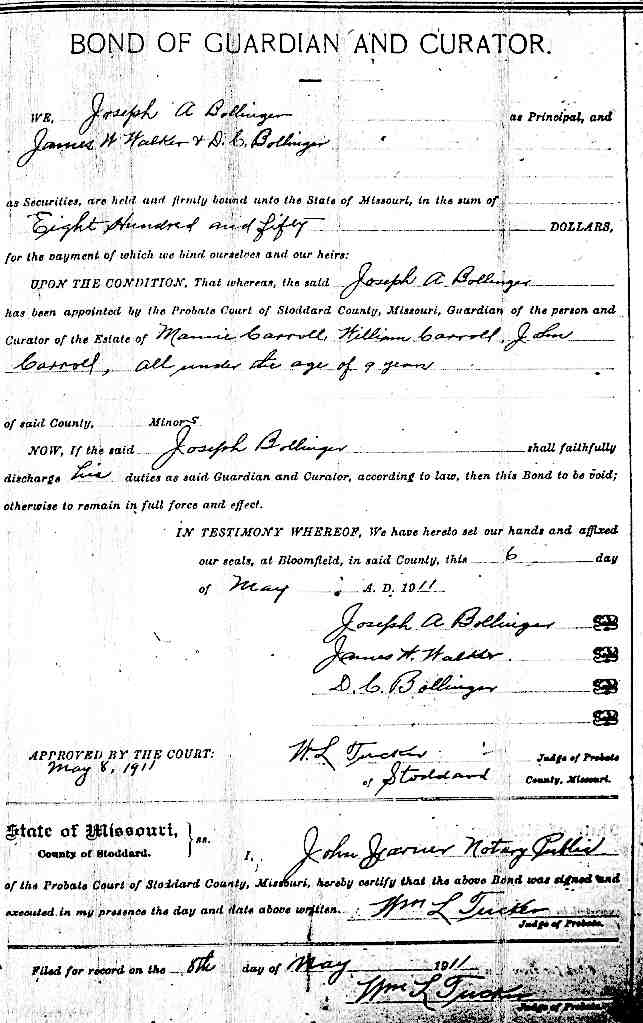 BOND OF GUARDIAN AND CURATOR.
WE, Joseph A Bollinger as Principal, and
James W Walker & D. C. Bollinger
as Securities, are held and firmly bound unto the State of Missouri, in the sum of
Eight Hundred and fifty DOLLARS,
for the payment of which we bind ourselves and our heirs:
UPON THE CONDITION, That whereas, the said Joseph A Bollinger
has been appointed by the Probate Court of Stoddard County, Missouri, Guardian of the person and
Curator of the Estate of Mannie Carroll, William Carroll, John
Carroll, all under the age of 9 years
of said County, Minors
NOW, If the said Joseph Bollinger shall faithfully
discharge his duties as said Guardian and Curator, according to law, then this Bond to be void;
otherwise to remain in full force and effect.
IN TESTIMONY WHEREOF, We have hereto set our hands and affixed
our seals, at Bloomfield, in said County, this 6 day
of May A. D. 1911
Joseph A Bollinger
James W. Walker
D. C. Bollinger
APPROVED BY THE COURT: W. L Tucker Judge of Probate
May 8, 1911 of Stoddard County, Missouri.
State of Missouri, } ss.
County of Stoddard. I, John Notary Public
of the Probate Court of Stoddard County, Missouri, hereby certify that the above Bond was signed and
executed in my presence the day and date above written. Wm L Tucker
Judge of Probate.
Filed for record on the 8th day of May 1911
Wm L Tucker
Judge of Probate